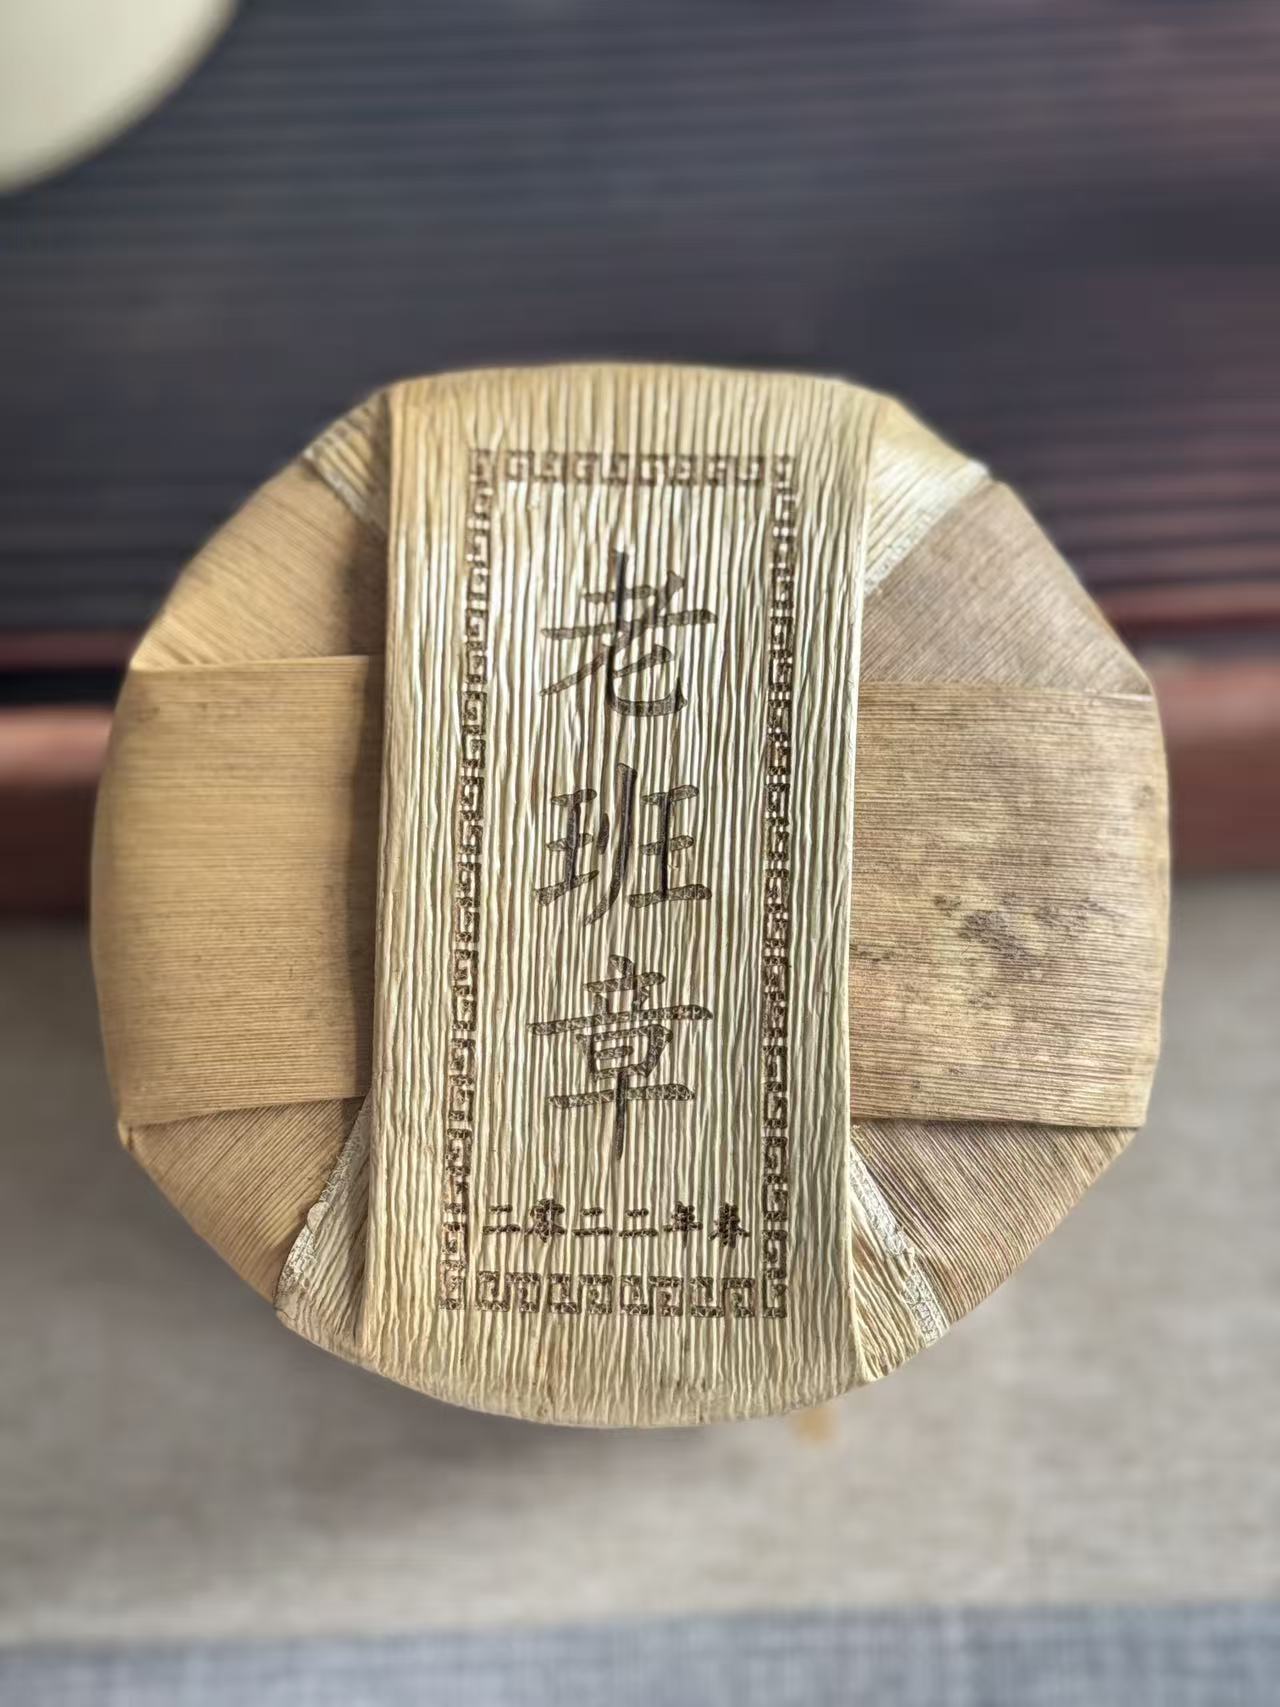 老班章
二零二二年春